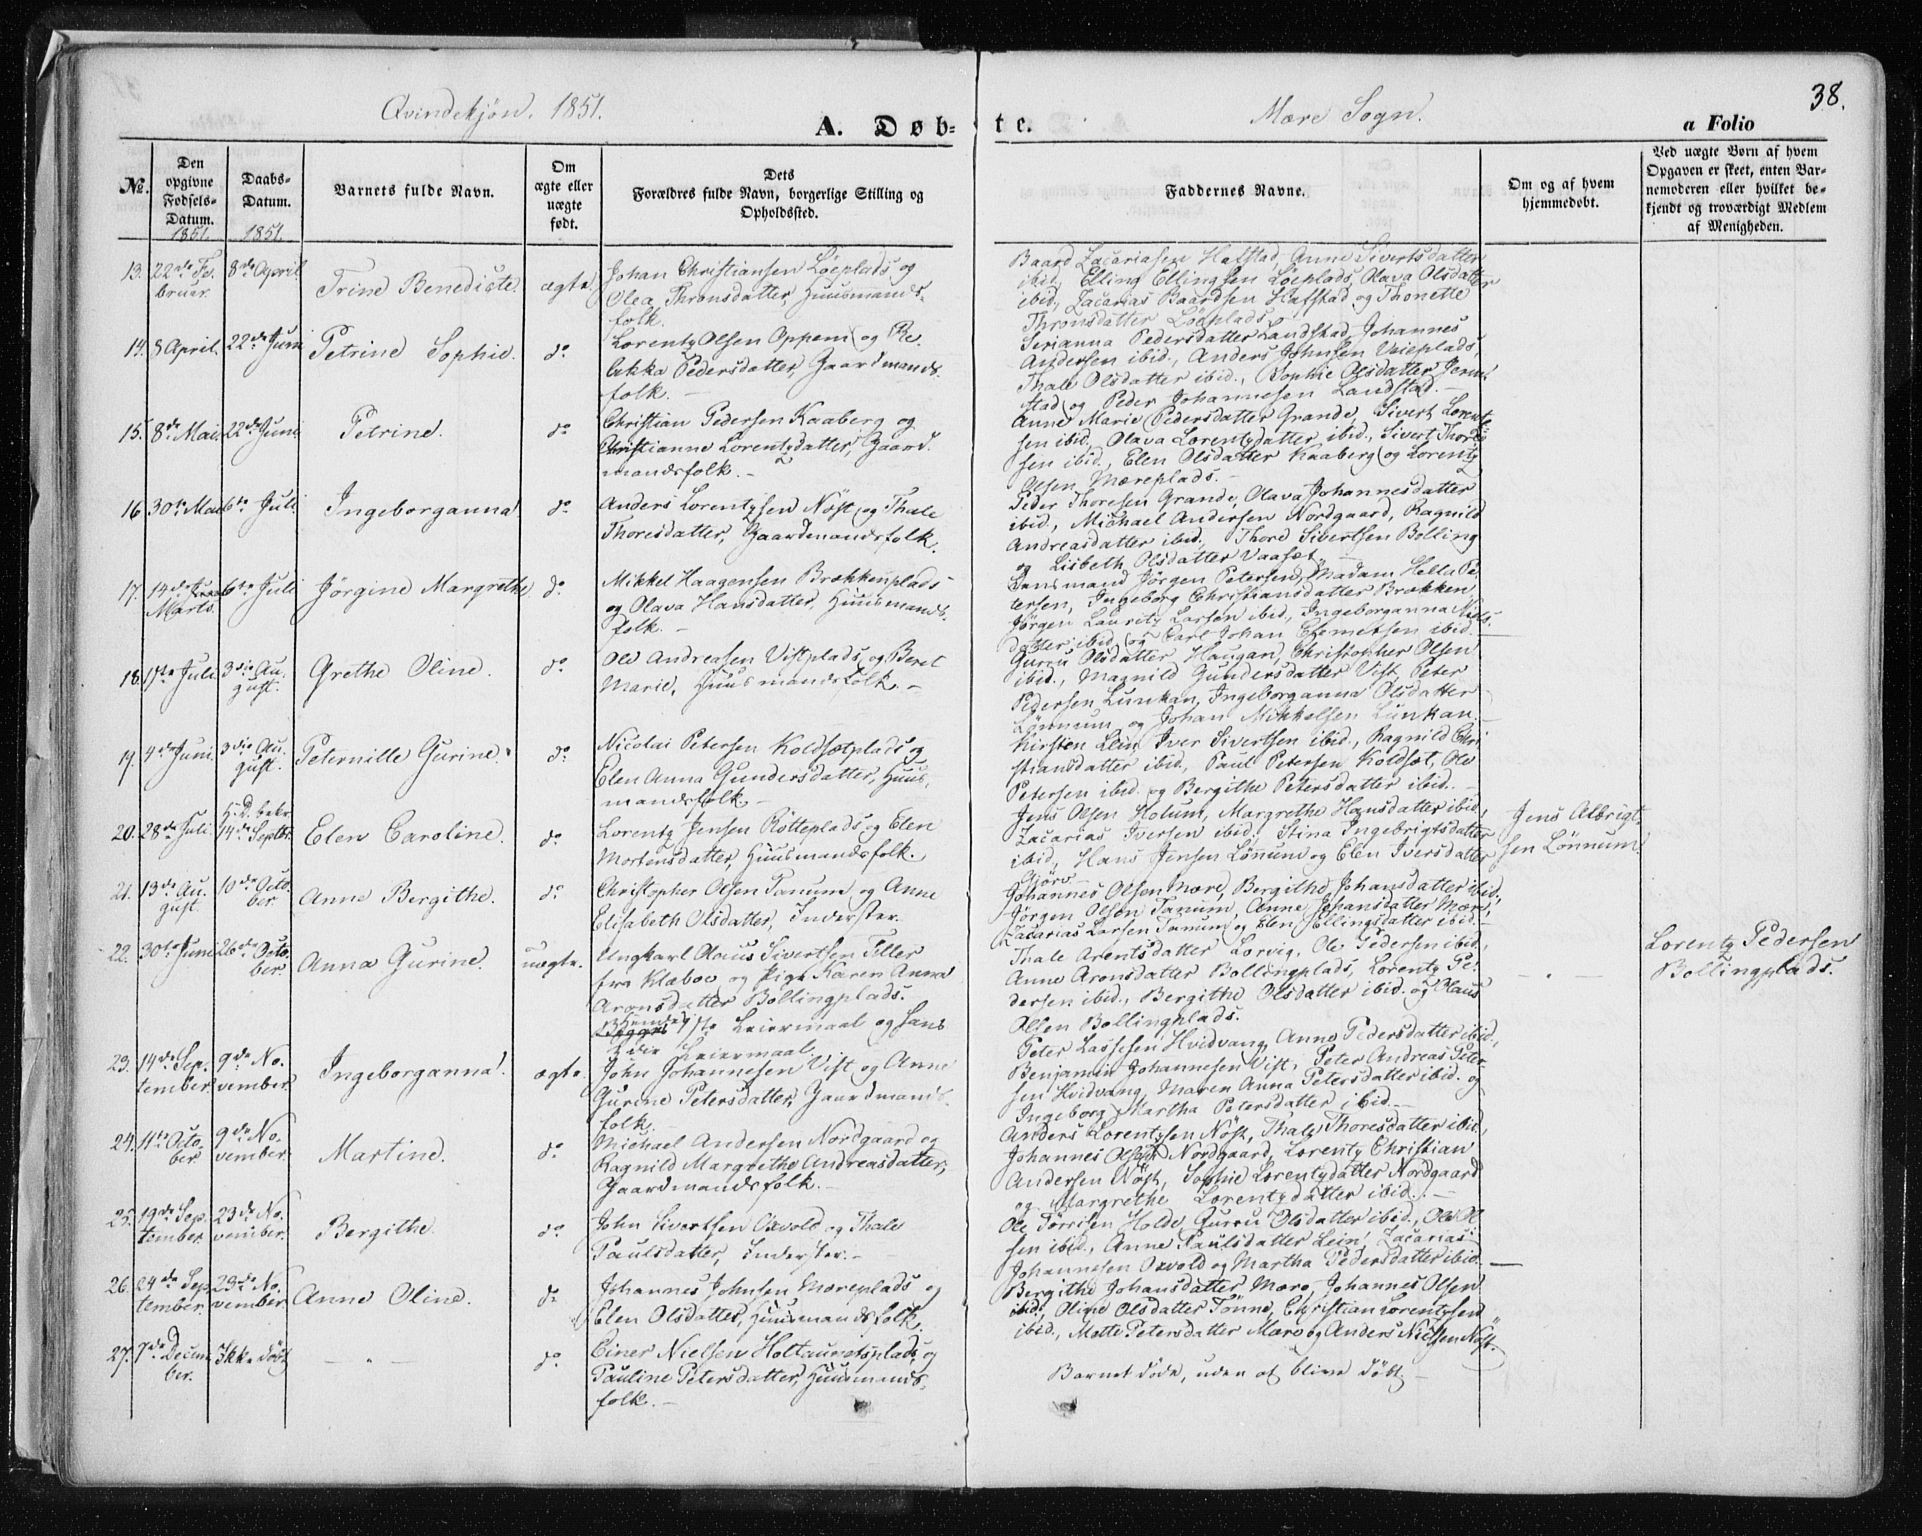 38.
Qvindekjøn. 1851.
Mære Sogn.
A. Døbte.
a Folio
No.
Den opgivne Fødsels-Datum.
1851.
Daabs-Datum.
1851.
Barnets fulde Navn.
Om ægte eller uægte født.
Dets Forældres fulde Navn, borgerlige Stilling og Opholdssted.
Faddernes Navne.
Om og af hvem hjemmedøbt.
Ved uægte Børn af hvem Opgaven er skeet, enten Barnemoderen eller hvilket bekjendt og troværdigt Medlem af Menigheden.
13. 22de Februar. 8de April Trine Benedicte. ægte.
Johan Christiansen Löeplads og
Olea Thronsdatter, Huusmands-
folk.
Baard Zacariasen Hafstad, Anne Sivertsdatter
ibid, Elling Ellingsen Löeplads, Olava Olsdatter
ibid, Zacarias Baardsen Hafstad og Thonette
Thronsdatter Löeplads
14. 8 April. 22de Juni Petrine Sophie. do
Lorentz Olsen Oppem og Be-
Pedersdatter, Gaardmands-
folk. –
Serianna Pedersdatter Landstad, Johannes
Andersen ibid., Anders Johnsen Veieplads,
Thale Olsdatter ibid., Sophie Olsdatter
stad og Peder Johannesen Landstad. –
15. 8de Mai 22de Juni Petrine. do
Christian Pedersen Kaaberg og
Christianne Lorentzdatter, Gaard-
mandsfolk. –
Anne Marie Pedersdatter Grande, Sivert Lorent-
sen ibid, Olava Lorentzdatter ibid., Sivert Thore-
sen ibid., Elen Olsdatter Kaaberg og Lorentz
Olsen Mæreplads. –
16. 30te Mai 6te Juli Ingeborganna. do
Anders Lorentzsen Nöst og Thale
Thoresdatter, Gaardmandsfolk.
Peder Thoresen Grande, Olava Johannesdatter
ibid, Michael Andersen Nordgaard, Ragnild
Andreasdatter ibid, Thore Sivertsen Bolling
og Lisbeth Olsdatter Vaaset. –
17. 14de Marts 6te Juli Jørgine Margrethe do
Mikkel Haagensen Brækkenplads
og Olava Hansdatter, Huusmands-
folk. –
Lensmand Jörgen Petersen, Madam Hella Pe-
tersen, Ingeborg Christiansdatter Brækken
Jörgen Lauritz Larsen ibid, Ingeborganna Niels-
datter ibid og Carl Johan Clemetsen ibid.
18. 17te Juli 3die August. Grethe Oline. do
Ole Andreasen Vistplads og Beret
Marie, Huusmandsfolk. –
Gurru Olsdatter Haugan, Christopher Olsen
ibid., Magnild Gundersdatter Vist, Peter
Pedersen Lunkan, Ingeborganna Olsdatter
Lönnum og Johan Mikkelsen Lunkan.
19. 4de Juni. 3die August. Peternille Gurine. do
Nicolai Petersen Koldsætplads og
Elen Anna Gundersdatter, Huus-
mandsfolk –
Kirsten Lein, Iver Sivertsen ibid., Ragnild Chri-
stiansdatter ibid, Paul Petersen Koldsæt, Ole
Petersen ibid. og Bergithe Petersdatter ibid. –
20. 28de Juli. H.D. bekr. 14de Septbr. Elen Caroline. do
Lorentz Jensen Rötteplads og Elen
Mortensdatter, Huusmandsfolk.
Jens Olsen Holum, Margrethe Hansdatter ibid,
Zacarias Iversen ibid, Stina Ingebrigtsdatter
ibid, Hans Jensen Lönnum og Elen Iversdatter
Gjörv –
Jens Albrigt-
sen Lönnum.
21. 13de August. 10de October Anne Bergithe. do
Christopher Olsen Tanum og Anne
Elisabeth Olsdatter, Inderster.
Johannes Olsen Mære, Bergithe Johansdatter ibid,
Jörgen Olsen Tanum, Anne Johansdatter Mære,
Zacarias Larsen Tanum og Elen Ellingsdatter ibid –
22. 30te Juni 26de October Anna Gurine. uægte.
Ungkarl Olaus Sivertsen Tiller
fra Klæboe og Pige Karen Anna
Aronsdatter Bollingplads.
Hendes 1ste Leiermaal og hans
2die Leiermaal.
Thale Arentsdatter Lorvig, Ole Pedersen ibid.
Anne Aronsdatter Bollingplads, Lorentz Pe-
dersen ibid., Bergithe Olsdatter ibid. og Olaus
Olsen Bollingplads.
– " –
Lorentz Pedersen
Bollingplads.
23. 14de September. 9de November. Ingeborganna. ægte.
John Johannesen Vist og Anne
Gurine Petersdatter, Gaardmands-
folk. –
Peter Lassesen Hvidvang, Anne Pedersdatter ibid,
Benjamin Johannesen Vist, Peter Andreas Peter-
sen Hvidvang, Maren Anna Petersdatter ibid. og
Ingeborg Martha Petersdatter ibid –
24. 11te October 9de November. Martine. do
Michael Andersen Nordgaard og
Ragnild Margrethe Andreasdatter,
Gaardmandsfolk. –
Anders Lorentzsen Nöst, Thale Thoresdatter ibid,
Johannes Olsen Nordgaard, Lorentz Christian
Andersen Nöst, Sophie Lorentzdatter Nordgaard
og Margrethe Lorentzdatter ibid. –
25. 19de September. 23de November. Bergithe. do
John Sivertsen Oxvold og Thale
Paulsdatter, Inderster. –
Ole Törrisen Holde, Gurru Olsdatter ibid., Ole Ol-
sen ibid., Anne Paulsdatter Lein, Zacarias
Johannesen Oxvold og Martha Pedersdatter ibid. –
26. 24de September. 23de November Anne Oline. do
Johannes Johnsen Mæreplads og
Elen Olsdatter, Huusmandsfolk.
Bergithe Johansdatter Mære, Johannes Olsen
ibid, Oline Olsdatter Tönne, Christian Lorentzsen
ibid., Mette Petersdatter Mære og Anders Nielsen Nöst.
27. 7de December. Ikke döbt – " – do
Einer Nielsen Holtaunetsplads og
Pauline Petersdatter, Huusmands-
folk. –
Barnet döde, uden at blive döbt –